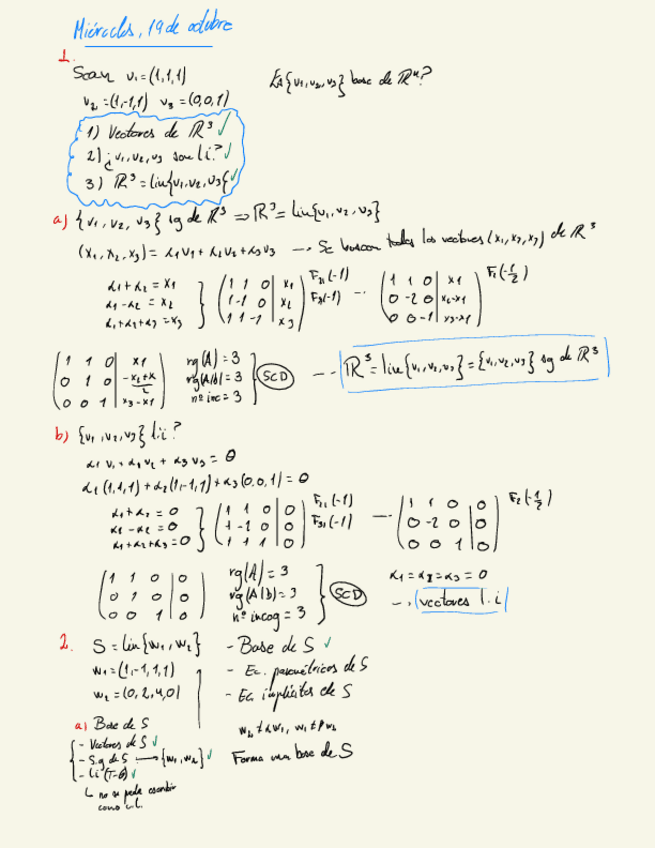 Miércoles, 19 de octubre
1.
Sean v₁=(1,1,1)
v₂=(1,-1,1) v₃=(0,0,1)
Es {v₁,v₂,v₃} base de ℝⁿ?
1) Vectores de ℝ³ ✓
2) ¿v₁,v₂,v₃ son l.i.? ✓
3) ℝ³=lin{v₁,v₂,v₃} ✓
a) {v₁, v₂, v₃} sg de ℝ³ ⇒ ℝ³=lin{v₁,v₂,v₃}
(x₁,x₂,x₃)=α₁v₁+α₂v₂+α₃v₃ → Se buscan todos los vectores (x₁,x₂,x₃) de ℝ³
α₁+α₂=x₁
α₁-α₂=x₂
α₁+α₂+α₃=x₃
1 1 0 | x₁
1 -1 0 | x₂
1 1 -1 | x₃
F₂₁(-1)
F₃₁(-1)
1 1 0 | x₁
0 -2 0 | x₂-x₁
0 0 -1 | x₃-x₁
F₂(-1/2)
1 1 0 | x₁
0 1 0 | -x₂+x₁/2
0 0 1 | x₃-x₁
rg(A)=3
rg(A|b)=3
nº inc=3
SCD
ℝ³=lin{v₁,v₂,v₃}={v₁,v₂,v₃} sg de ℝ³
b) {v₁,v₂,v₃} l.i?
α₁v₁+α₂v₂+α₃v₃=0
α₁(1,1,1)+α₂(1,-1,1)+α₃(0,0,1)=0
α₁+α₂=0
α₁-α₂=0
α₁+α₂+α₃=0
1 1 0 | 0
1 -1 0 | 0
1 1 1 | 0
F₂₁(-1)
F₃₁(-1)
1 1 0 | 0
0 -2 0 | 0
0 0 1 | 0
F₂(-1/2)
1 1 0 | 0
0 1 0 | 0
0 0 1 | 0
rg(A)=3
rg(A|b)=3
nº incog=3
SCD
α₁=α₂=α₃=0
→ vectores l.i
2. S=lin{w₁,w₂}
w₁=(1,-1,1,1)
w₂=(0,2,4,0)
- Base de S ✓
- Ec. paramétricas de S
- Ec. implícitas de S
a) Base de S
- Vectores de S ✓
- S.g de S → {w₁,w₂} ✓
- l.i (T-6) ✓
no se puede escribir
como c.l.
w₂≠αw₁, w₁≠βw₂
Forma una base de S